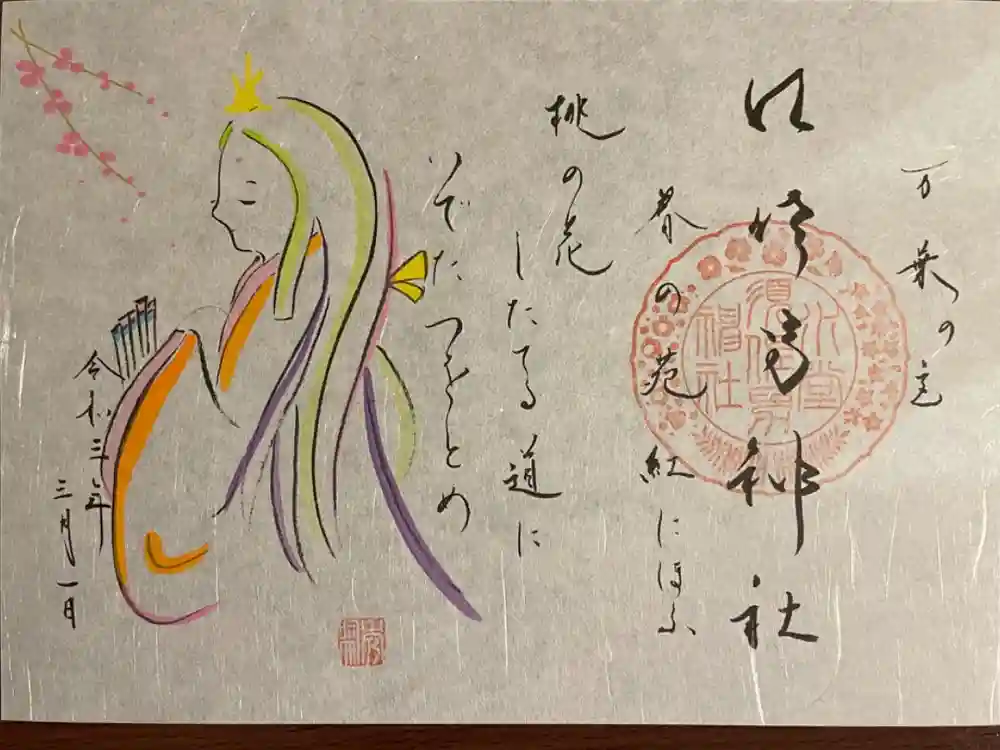 万葉の
須佐男神社
春の苑紅にほふ
桃の花
したてる道に
いでたつをとめ
令和三年
三月一日